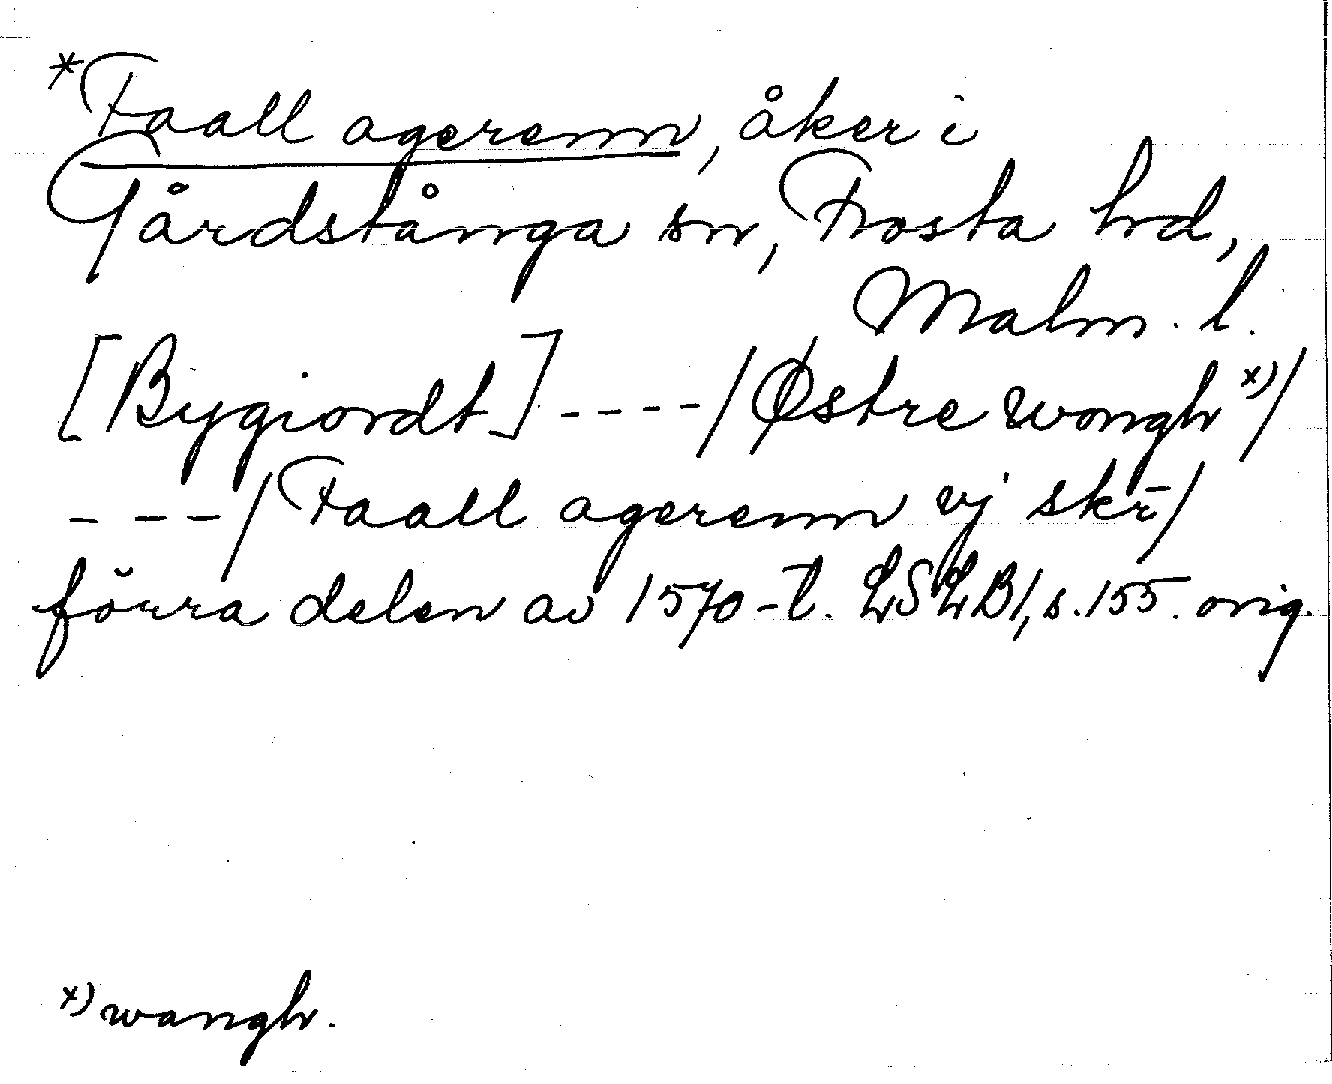 *Faall agerenn, åker i
Gårdstånga sn, Frosta hd,
Malm. l.
[Bygiordt] ----/Østre wongh x)/
---/Faall agerenn vj skr̄/
förra delen av 1570-t. LSLB1, s.155. orig.
x) wangh.